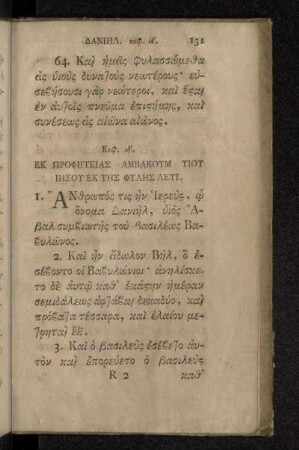 ΔΑΝΙΗΛ. κεφ. ιδ'. 131
64. Καὶ ἡμεῖς φυλασσώμεθα
εἰς υἱοὺς δυνατοὺς νεωτέρους· εὐ-
σεβήσουσι γὰρ νεώτεροι, καὶ ἔσται
ἐν αὐτοῖς πνεῦμα ἐπιστήμης, καὶ
συνέσεως εἰς αἰῶνα αἰῶνος.
Κεφ. ιδ'.
ΕΚ ΠΡΟΦΗΤΕΙΑΣ ΑΜΒΑΚΟΥΜ ΥΙΟΥ
ΙΗΣΟΥ ΕΚ ΤΗΣ ΦΥΛΗΣ ΛΕΥΙ.
1. ἌΝθρωπός τις ἦν Ἱερεὺς, ᾧ
ὄνομα Δανιὴλ, υἱὸς Ἄ-
βαλ συμβιωτὴς τοῦ βασιλέως Βα-
βυλῶνος.
2. Καὶ ἦν εἴδωλον Βὴλ, ὃ ἐ-
σέβοντο οἱ Βαβυλώνιοι· ἀνηλίσκε-
το δὲ αὐτῷ καθ' ἑκάστην ἡμέραν
σεμιδάλεως ἀρτάβαι δεκαδύο, καὶ
πρόβατα τέσσαρα, καὶ ἐλαίου με-
τρηταὶ ἕξ.
3. Καὶ ὁ βασιλεὺς ἐσέβετο αὐ-
τὸν καὶ ἐπορεύετο ὁ βασιλεὺς
R 2 καθ'